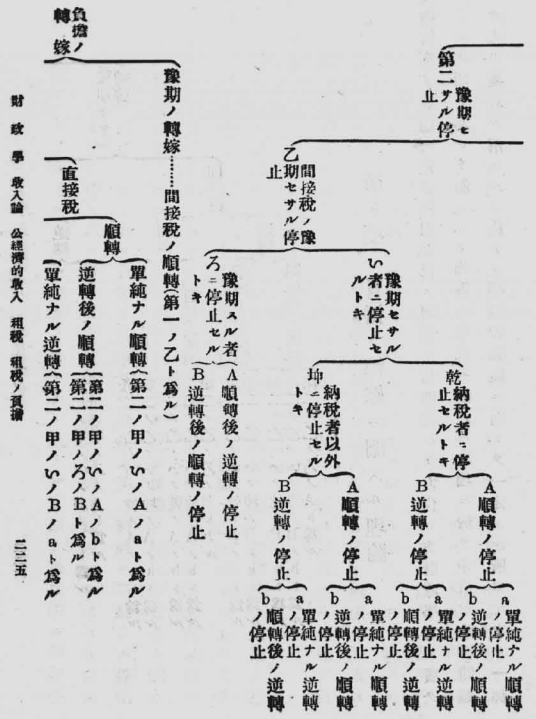 第二 豫期セサル停止
乙 間接税ノ豫期セサル停止
い 豫期セサル者ニ停止セルトキ
乾 納税者ニ停止セルトキ
A 順轉ノ停止
a 單純ナル順轉ノ停止
b 逆轉後ノ順轉ノ停止
B 逆轉ノ停止
a 單純ナル逆轉ノ停止
b 順轉後ノ逆轉ノ停止
坤 納税者以外ニ停止セルトキ
A 順轉ノ停止
a 單純ナル順轉ノ停止
b 逆轉後ノ順轉ノ停止
B 逆轉ノ停止
a 單純ナル逆轉ノ停止
b 順轉後ノ逆轉ノ停止
ろ 豫期スル者ニ停止セルトキ
A 順轉後ノ逆轉ノ停止
B 逆轉後ノ順轉ノ停止
負擔ノ轉嫁
豫期ノ轉嫁……間接税ノ順轉(第一ノ乙ト爲ル)
直接税
順轉
單純ナル順轉(第二ノ甲ノいノAノaト爲ル
逆轉後ノ順轉
第二ノ甲ノいノAノbト爲ル
第二ノ甲ノろノBト爲ル
單純ナル逆轉(第二ノ甲ノいノBノaト爲ル
財政學 收入論 公經濟的收入 租税 租税ノ負擔
二二五